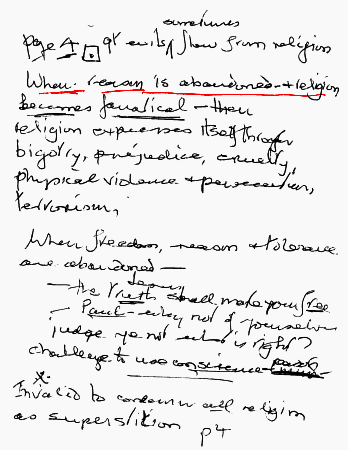 sometimes
page 4. gt evils flow from religion
When reason is abandoned + religion
becomes fanatical — then
religion expresses itself through
bigotry, prejudice, cruelty,
physical violence + persecution,
terrorism,
When freedom, reason + tolerance
are abandoned —
— the Truth shall make you free
- Paul - why not of yourselves
judge ye not what is right?
challenge to use conscience
Invalid to condemn all religion
as superstition p4